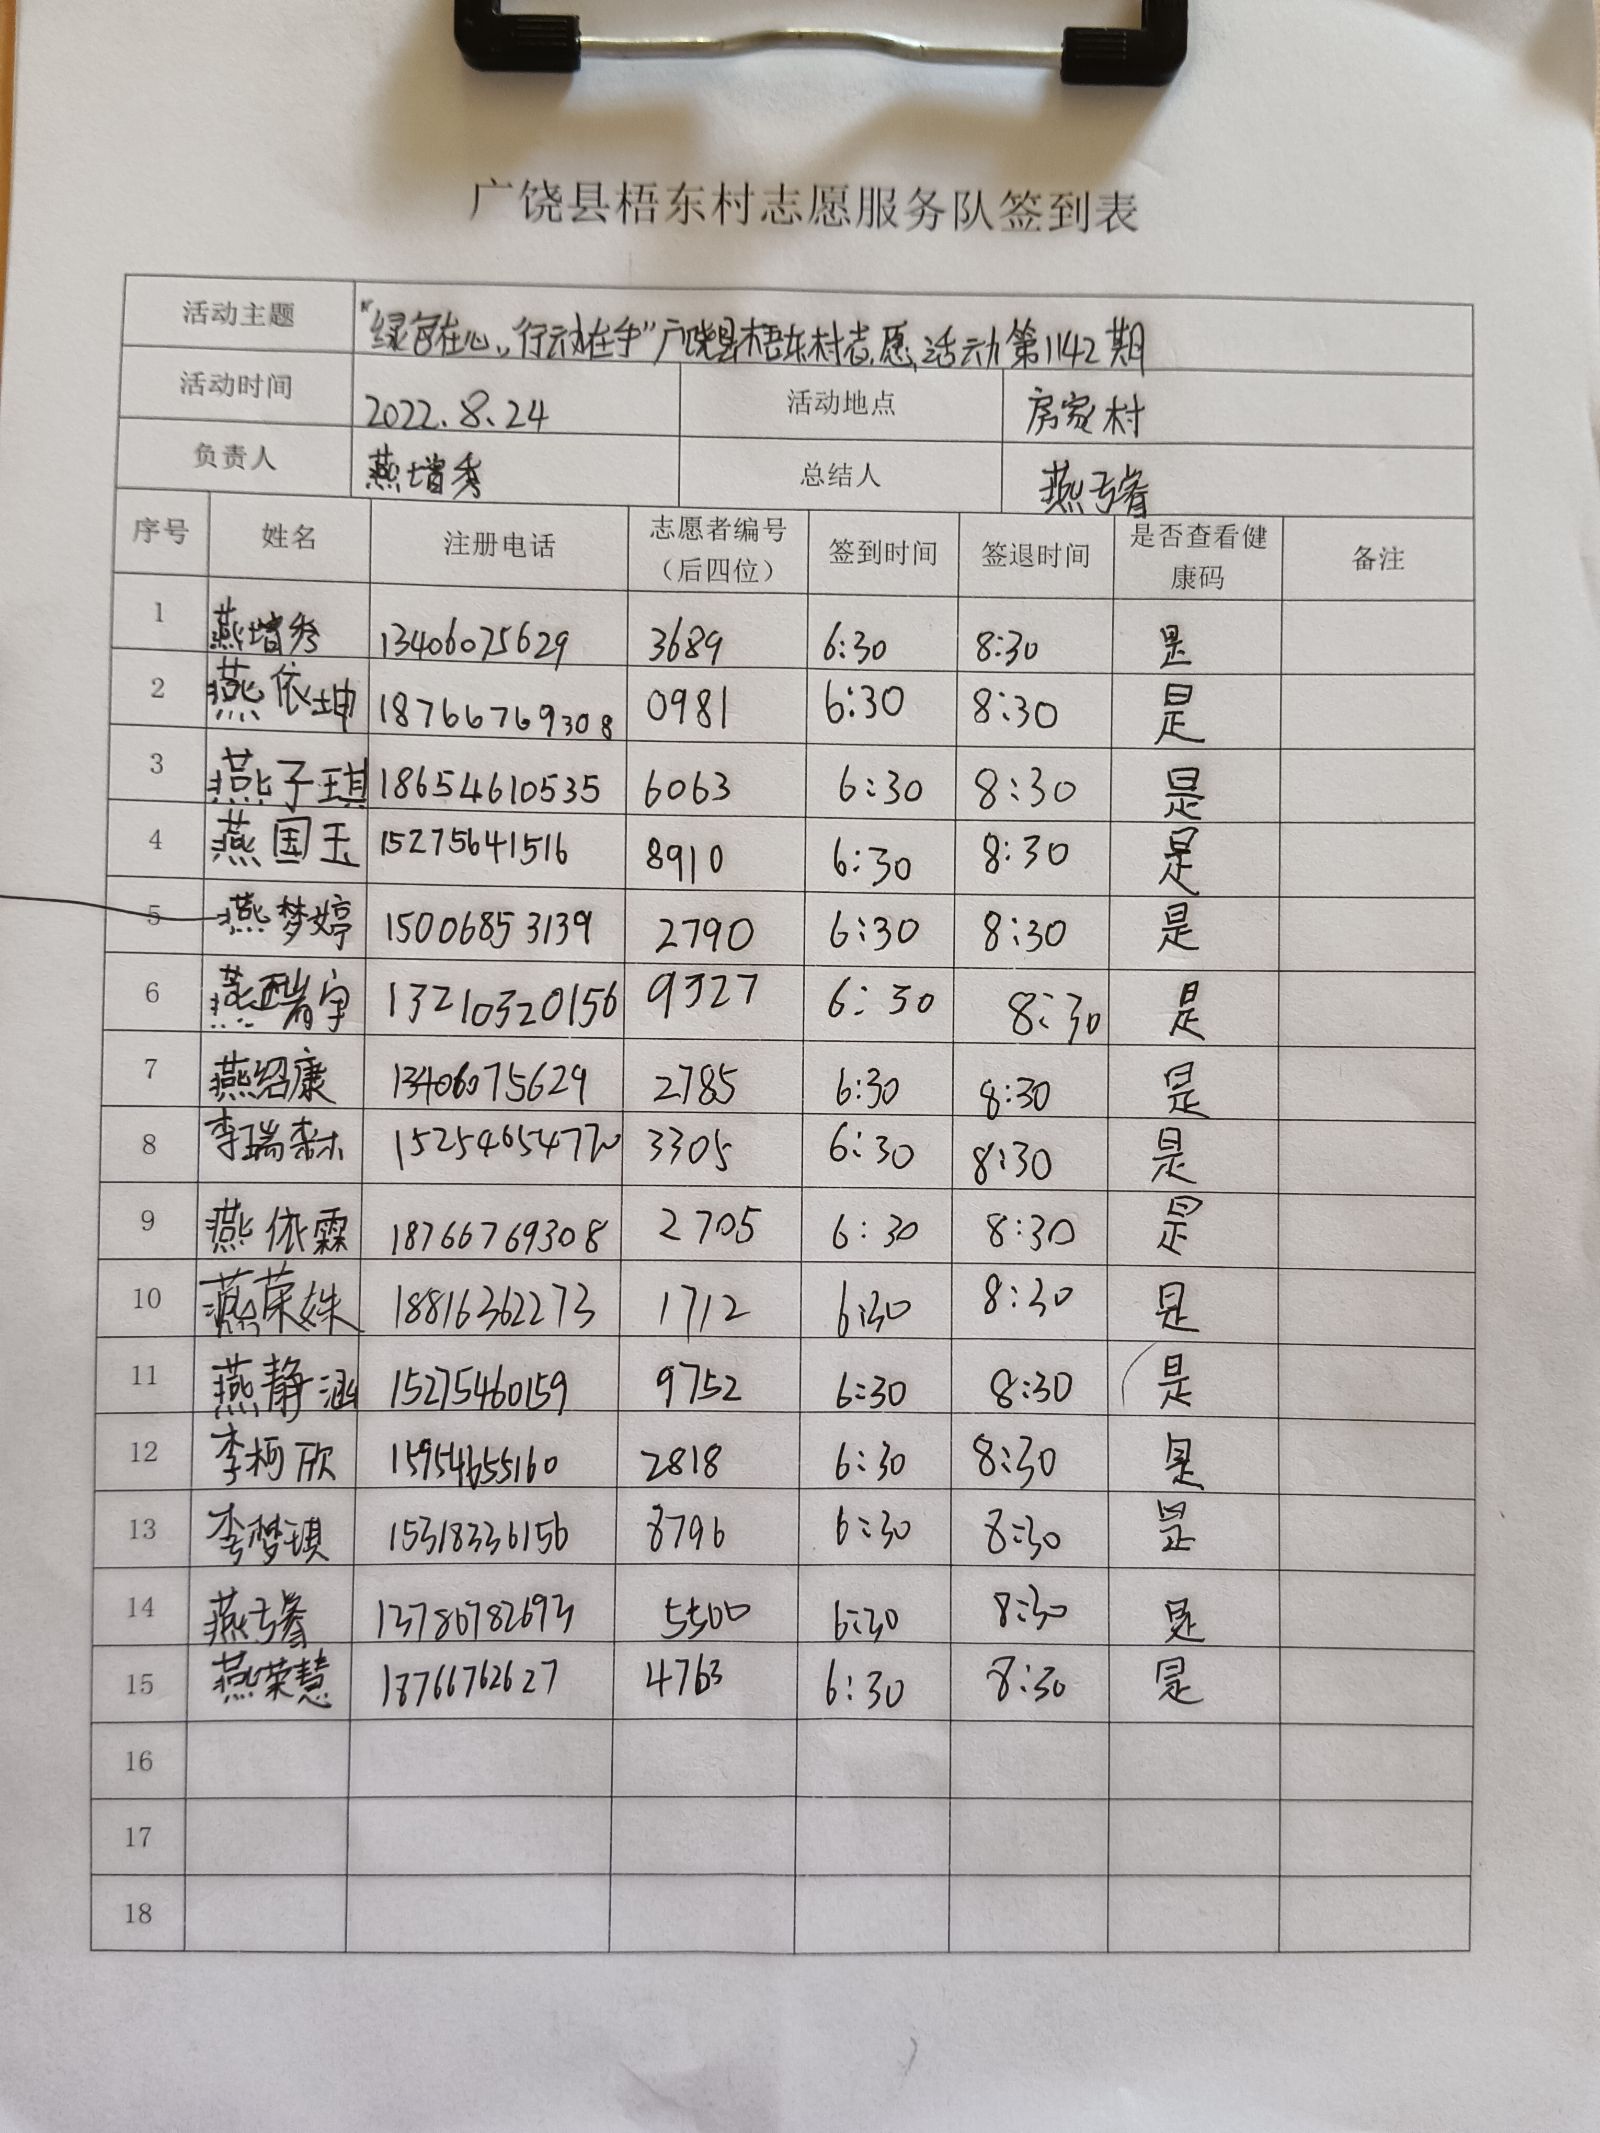 广饶县梧东村志愿服务队签到表
活动主题 “绿色在心,行动在手”广饶县梧东村志愿活动第1142期
活动时间 2022.8.24 活动地点 房家村
负责人 燕增秀 总结人 燕子睿
序号 姓名 注册电话 志愿者编号（后四位） 签到时间 签退时间 是否查看健康码 备注
1 燕增秀 13406075629 3689 6:30 8:30 是
2 燕依坤 18766769308 0981 6:30 8:30 是
3 燕子琪 18654610535 6063 6:30 8:30 是
4 燕国玉 15275641516 8910 6:30 8:30 是
5 燕梦婷 15006853139 2790 6:30 8:30 是
6 燕瑞宇 13210320156 9327 6:30 8:30 是
7 燕绍康 13406075629 2785 6:30 8:30 是
8 李瑞霖 3305 6:30 8:30 是
9 燕依霖 18766769308 2705 6:30 8:30 是
10 燕荣姝 18816362273 1712 6:30 8:30 是
11 燕静涵 15275460159 9752 6:30 8:30 是
12 李柯欣 15954655160 2818 6:30 8:30 是
13 李梦琪 15318336156 8796 6:30 8:30 是
14 燕子睿 13780782693 5500 6:30 8:30 是
15 燕荣慧 18766762627 4763 6:30 8:30 是
16
17
18